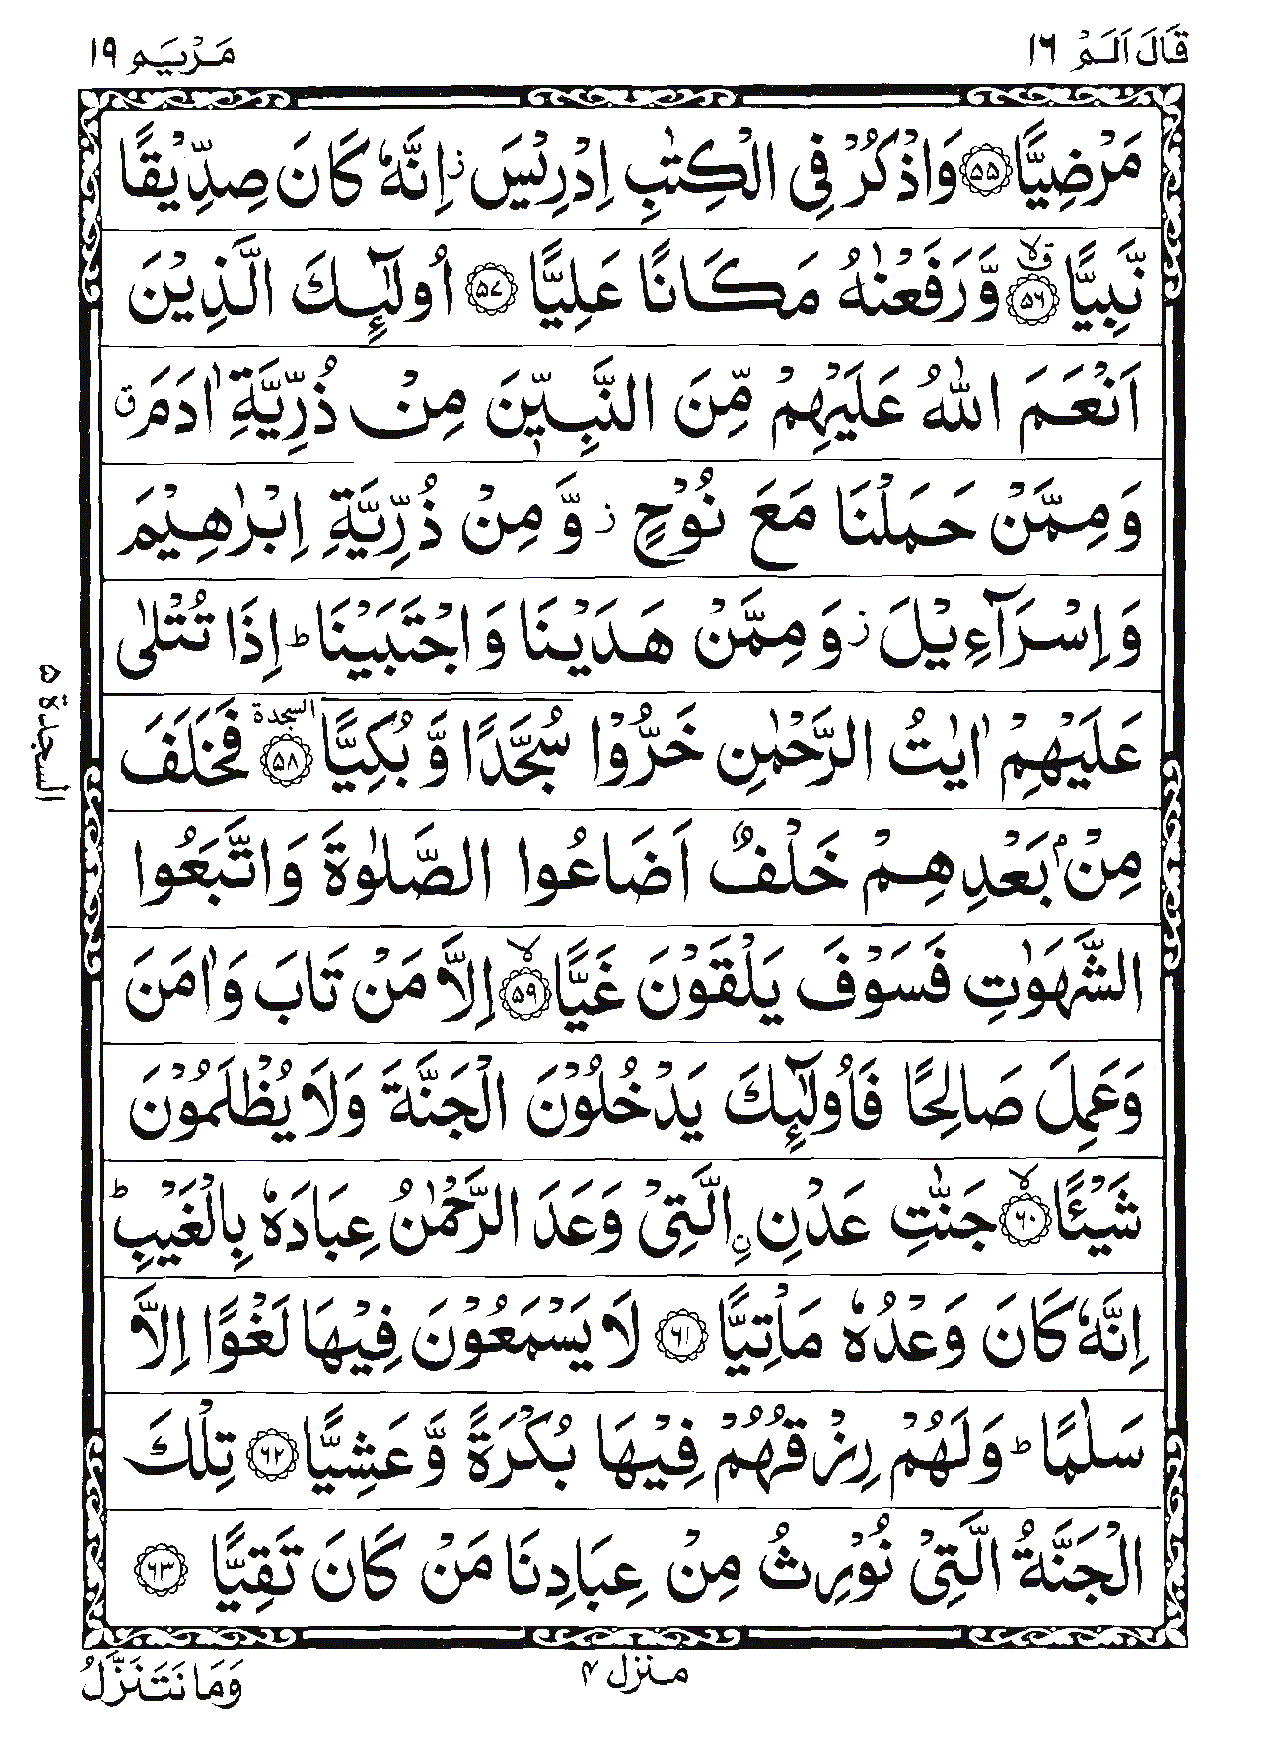 قَالَ اَلَمْ ١٦
مَرْيَم ١٩
مَرْضِيًّا ۝٥٥ وَاذْكُرْ فِى الْكِتٰبِ اِدْرِيْسَ ز اِنَّهٗ كَانَ صِدِّيْقًا
نَّبِيًّا ۝٥٦ ق لا وَّرَفَعْنٰهُ مَكَانًا عَلِيًّا ۝٥٧ اُولٰٓئِكَ الَّذِيْنَ
اَنْعَمَ اللّٰهُ عَلَيْهِمْ مِّنَ النَّبِيّٖنَ مِنْ ذُرِّيَّةِ اٰدَمَ ق
وَمِمَّنْ حَمَلْنَا مَعَ نُوْحٍ ز وَّمِنْ ذُرِّيَّةِ اِبْرٰهِيْمَ
وَاِسْرَآءِيْلَ ز وَمِمَّنْ هَدَيْنَا وَاجْتَبَيْنَا ط اِذَا تُتْلٰى
عَلَيْهِمْ اٰيٰتُ الرَّحْمٰنِ خَرُّوْا سُجَّدًا وَّبُكِيًّا ۝٥٨ السجدة فَخَلَفَ
السجدة ٥
مِنْۢ بَعْدِهِمْ خَلْفٌ اَضَاعُوا الصَّلٰوةَ وَاتَّبَعُوا
الشَّهَوٰتِ فَسَوْفَ يَلْقَوْنَ غَيًّا ۝٥٩ لا اِلَّا مَنْ تَابَ وَاٰمَنَ
وَعَمِلَ صَالِحًا فَاُولٰٓئِكَ يَدْخُلُوْنَ الْجَنَّةَ وَلَا يُظْلَمُوْنَ
شَيْئًا ۝٦٠ لا جَنّٰتِ عَدْنِ ِۨالَّتِىْ وَعَدَ الرَّحْمٰنُ عِبَادَهٗ بِالْغَيْبِ ط
اِنَّهٗ كَانَ وَعْدُهٗ مَاْتِيًّا ۝٦١ لَا يَسْمَعُوْنَ فِيْهَا لَغْوًا اِلَّا
سَلٰمًا ط وَلَهُمْ رِزْقُهُمْ فِيْهَا بُكْرَةً وَّعَشِيًّا ۝٦٢ تِلْكَ
الْجَنَّةُ الَّتِىْ نُوْرِثُ مِنْ عِبَادِنَا مَنْ كَانَ تَقِيًّا ۝٦٣
منزل ٤
وَمَا نَتَنَزَّلُ